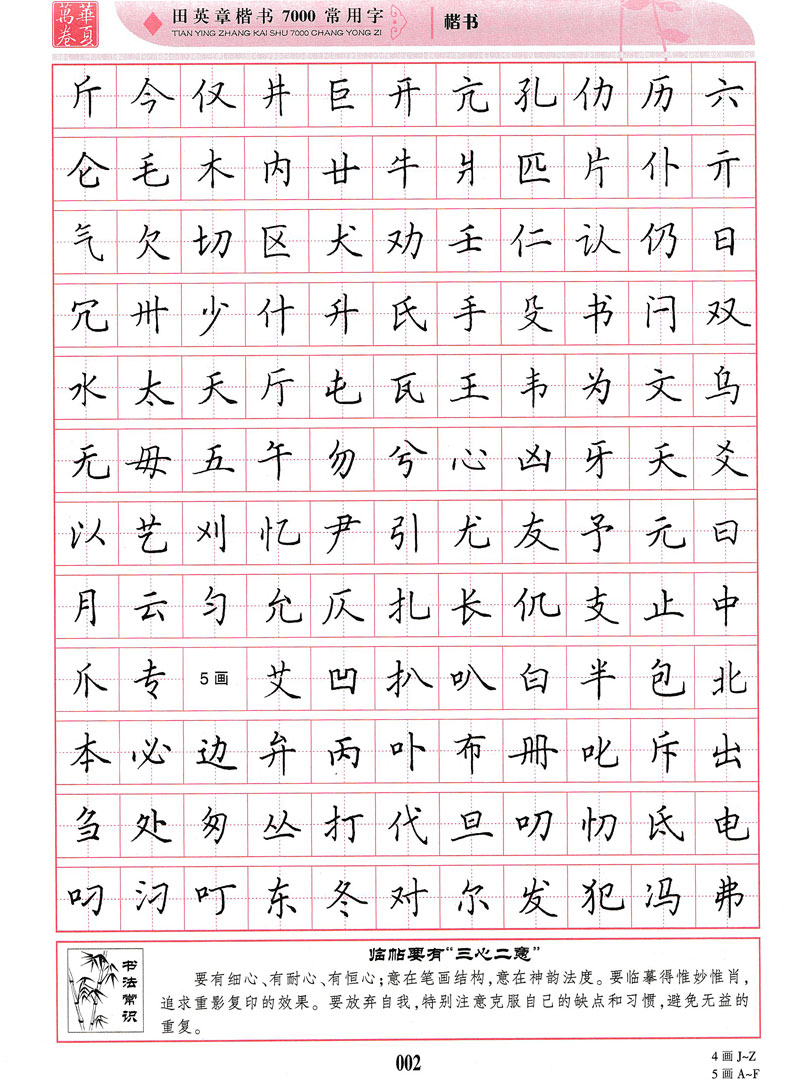 華夏萬卷
田英章楷书 7000 常用字
TIAN YING ZHANG KAI SHU 7000 CHANG YONG ZI
楷书
斤 今 仅 井 巨 开 亢 孔 仂 历 六
仑 毛 木 内 廿 牛 爿 匹 片 仆 亓
气 欠 切 区 犬 劝 壬 仁 认 仍 日
冗 卅 少 什 升 氏 手 殳 书 闩 双
水 太 天 厅 屯 瓦 王 韦 为 文 乌
无 毋 五 午 勿 兮 心 凶 牙 夭 爻
以 艺 刈 忆 尹 引 尤 友 予 元 曰
月 云 匀 允 仄 扎 长 仉 支 止 中
爪 专 5画 艾 凹 扒 叭 白 半 包 北
本 必 边 弁 丙 卟 布 册 叱 斥 出
刍 处 匆 丛 打 代 旦 叨 忉 氐 电
叼 氿 叮 东 冬 对 尔 发 犯 冯 弗
书法常识
临帖要有“三心二意”
要有细心、有耐心、有恒心;意在笔画结构,意在神韵法度。要临摹得惟妙惟肖,
追求重影复印的效果。要放弃自我,特别注意克服自己的缺点和习惯,避免无益的
重复。
002
4 画 J~Z
5 画 A~F